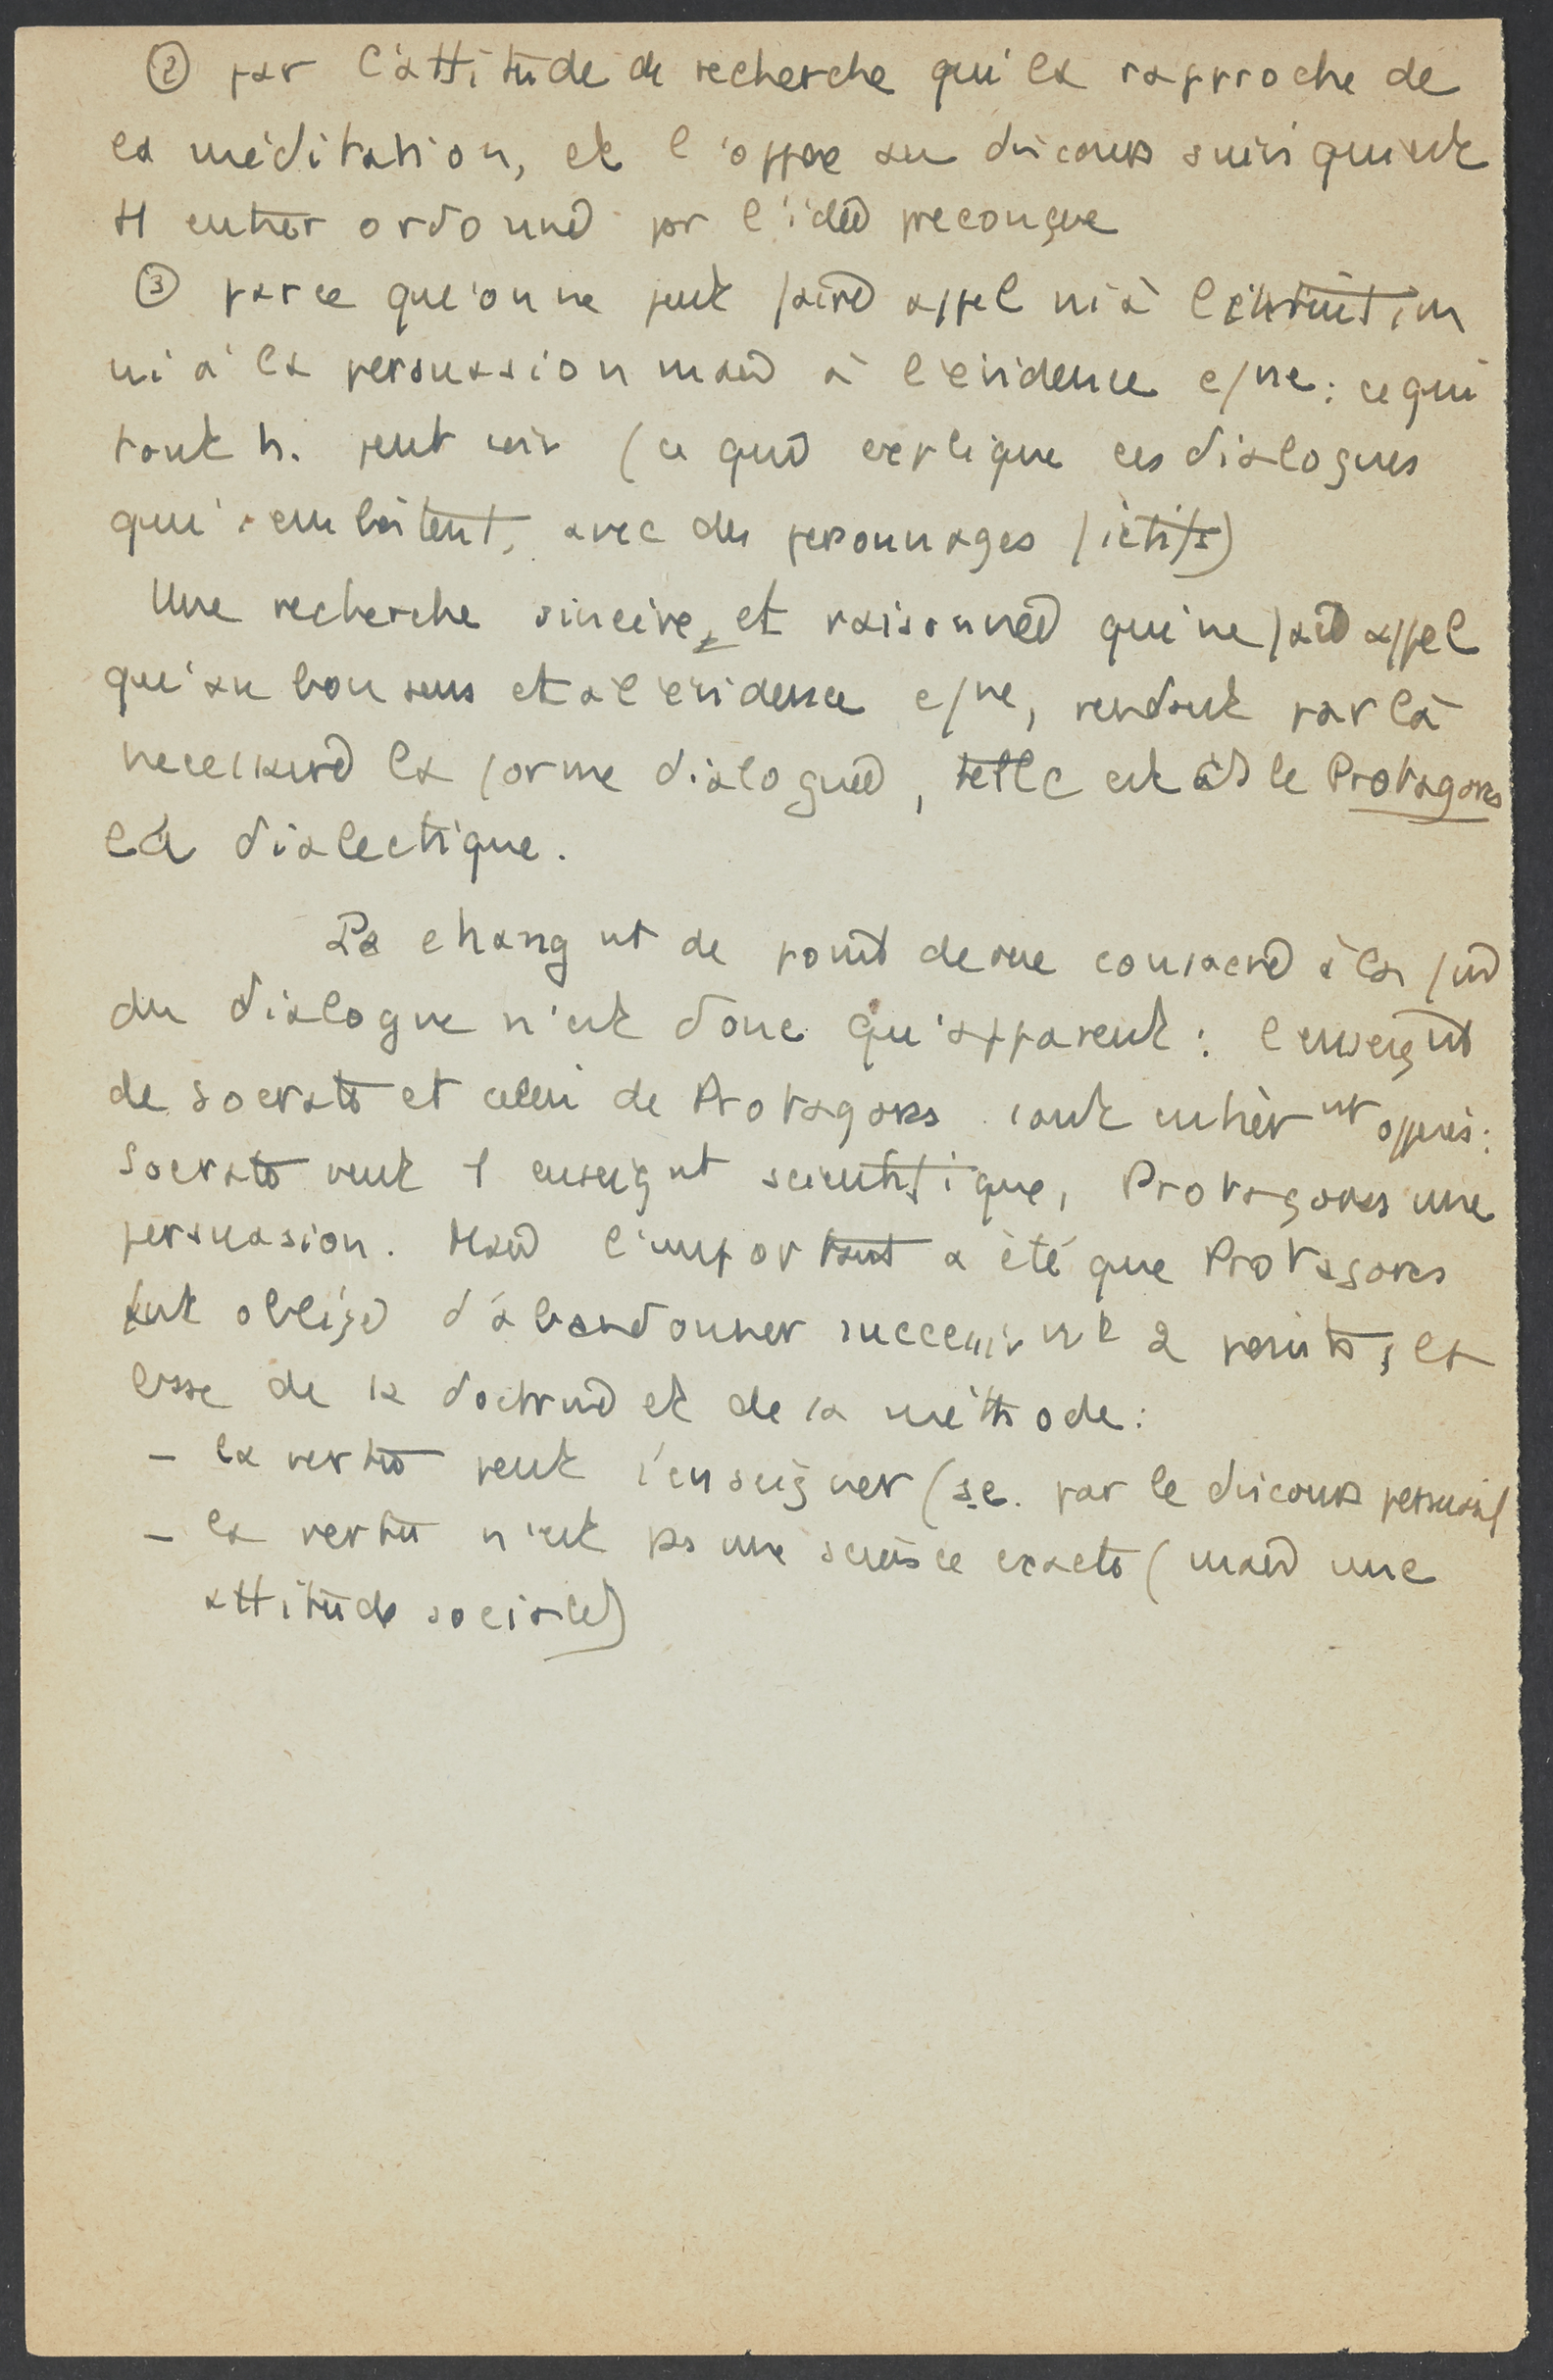 ② par l'attitude de recherche qui la rapproche de
la méditation, et l'oppose au discours suivi qui est
tt entier ordonné par l'idée preconçue
③ parce qu'on ne peut faire appel ni à l'intuition
ni à la persuasion mais à l'évidence c/ne : ce qui
tout h. peut voir (ce qui explique ces dialogues
qui s'emboîtent, avec des personnages fictifs)
Une recherche sincère, et raisonnée qui ne fait appel
qu'au bon sens et à l'évidence c/ne, rendant par là
necessaire la forme dialoguée, telle est ds le Protagoras
la dialectique.
Le changnt de point de vue consacré à la fin
du dialogue n'est donc qu'apparent : l'enseignt
de Socrate et celui de Protagoras sont entièrnt opposés :
Socrate veut 1 enseignt scientifique, Protagoras une
persuasion. Mais l'important a été que Protagoras
fut obligé d'abandonner successivnt 2 points, la
base de la doctrine et de la méthode :
– la vertu peut s'enseigner (s.e. par le discours persuasif
– la vertu n'est pas une science exacte (mais une
attitude sociale)